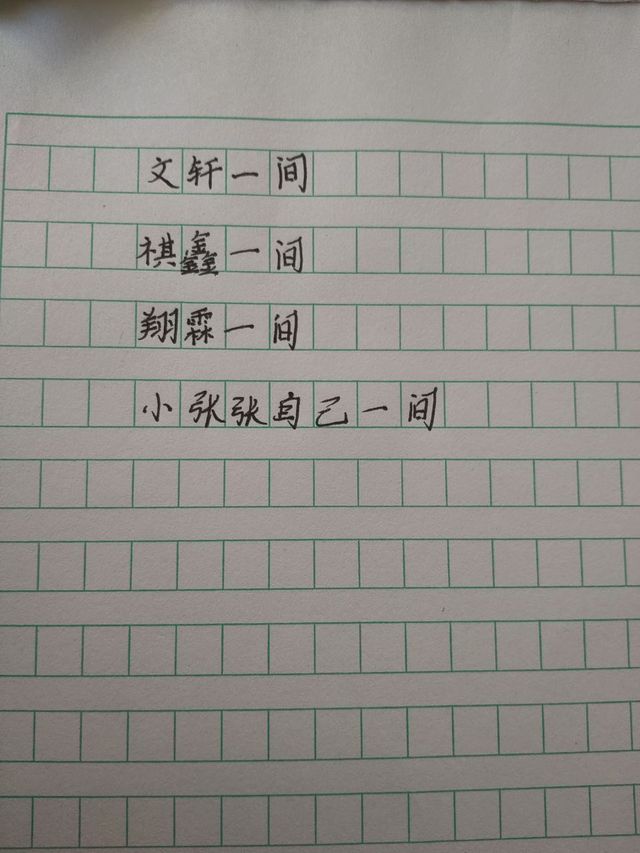 文轩一间
祺鑫一间
翔霖一间
小张张自己一间